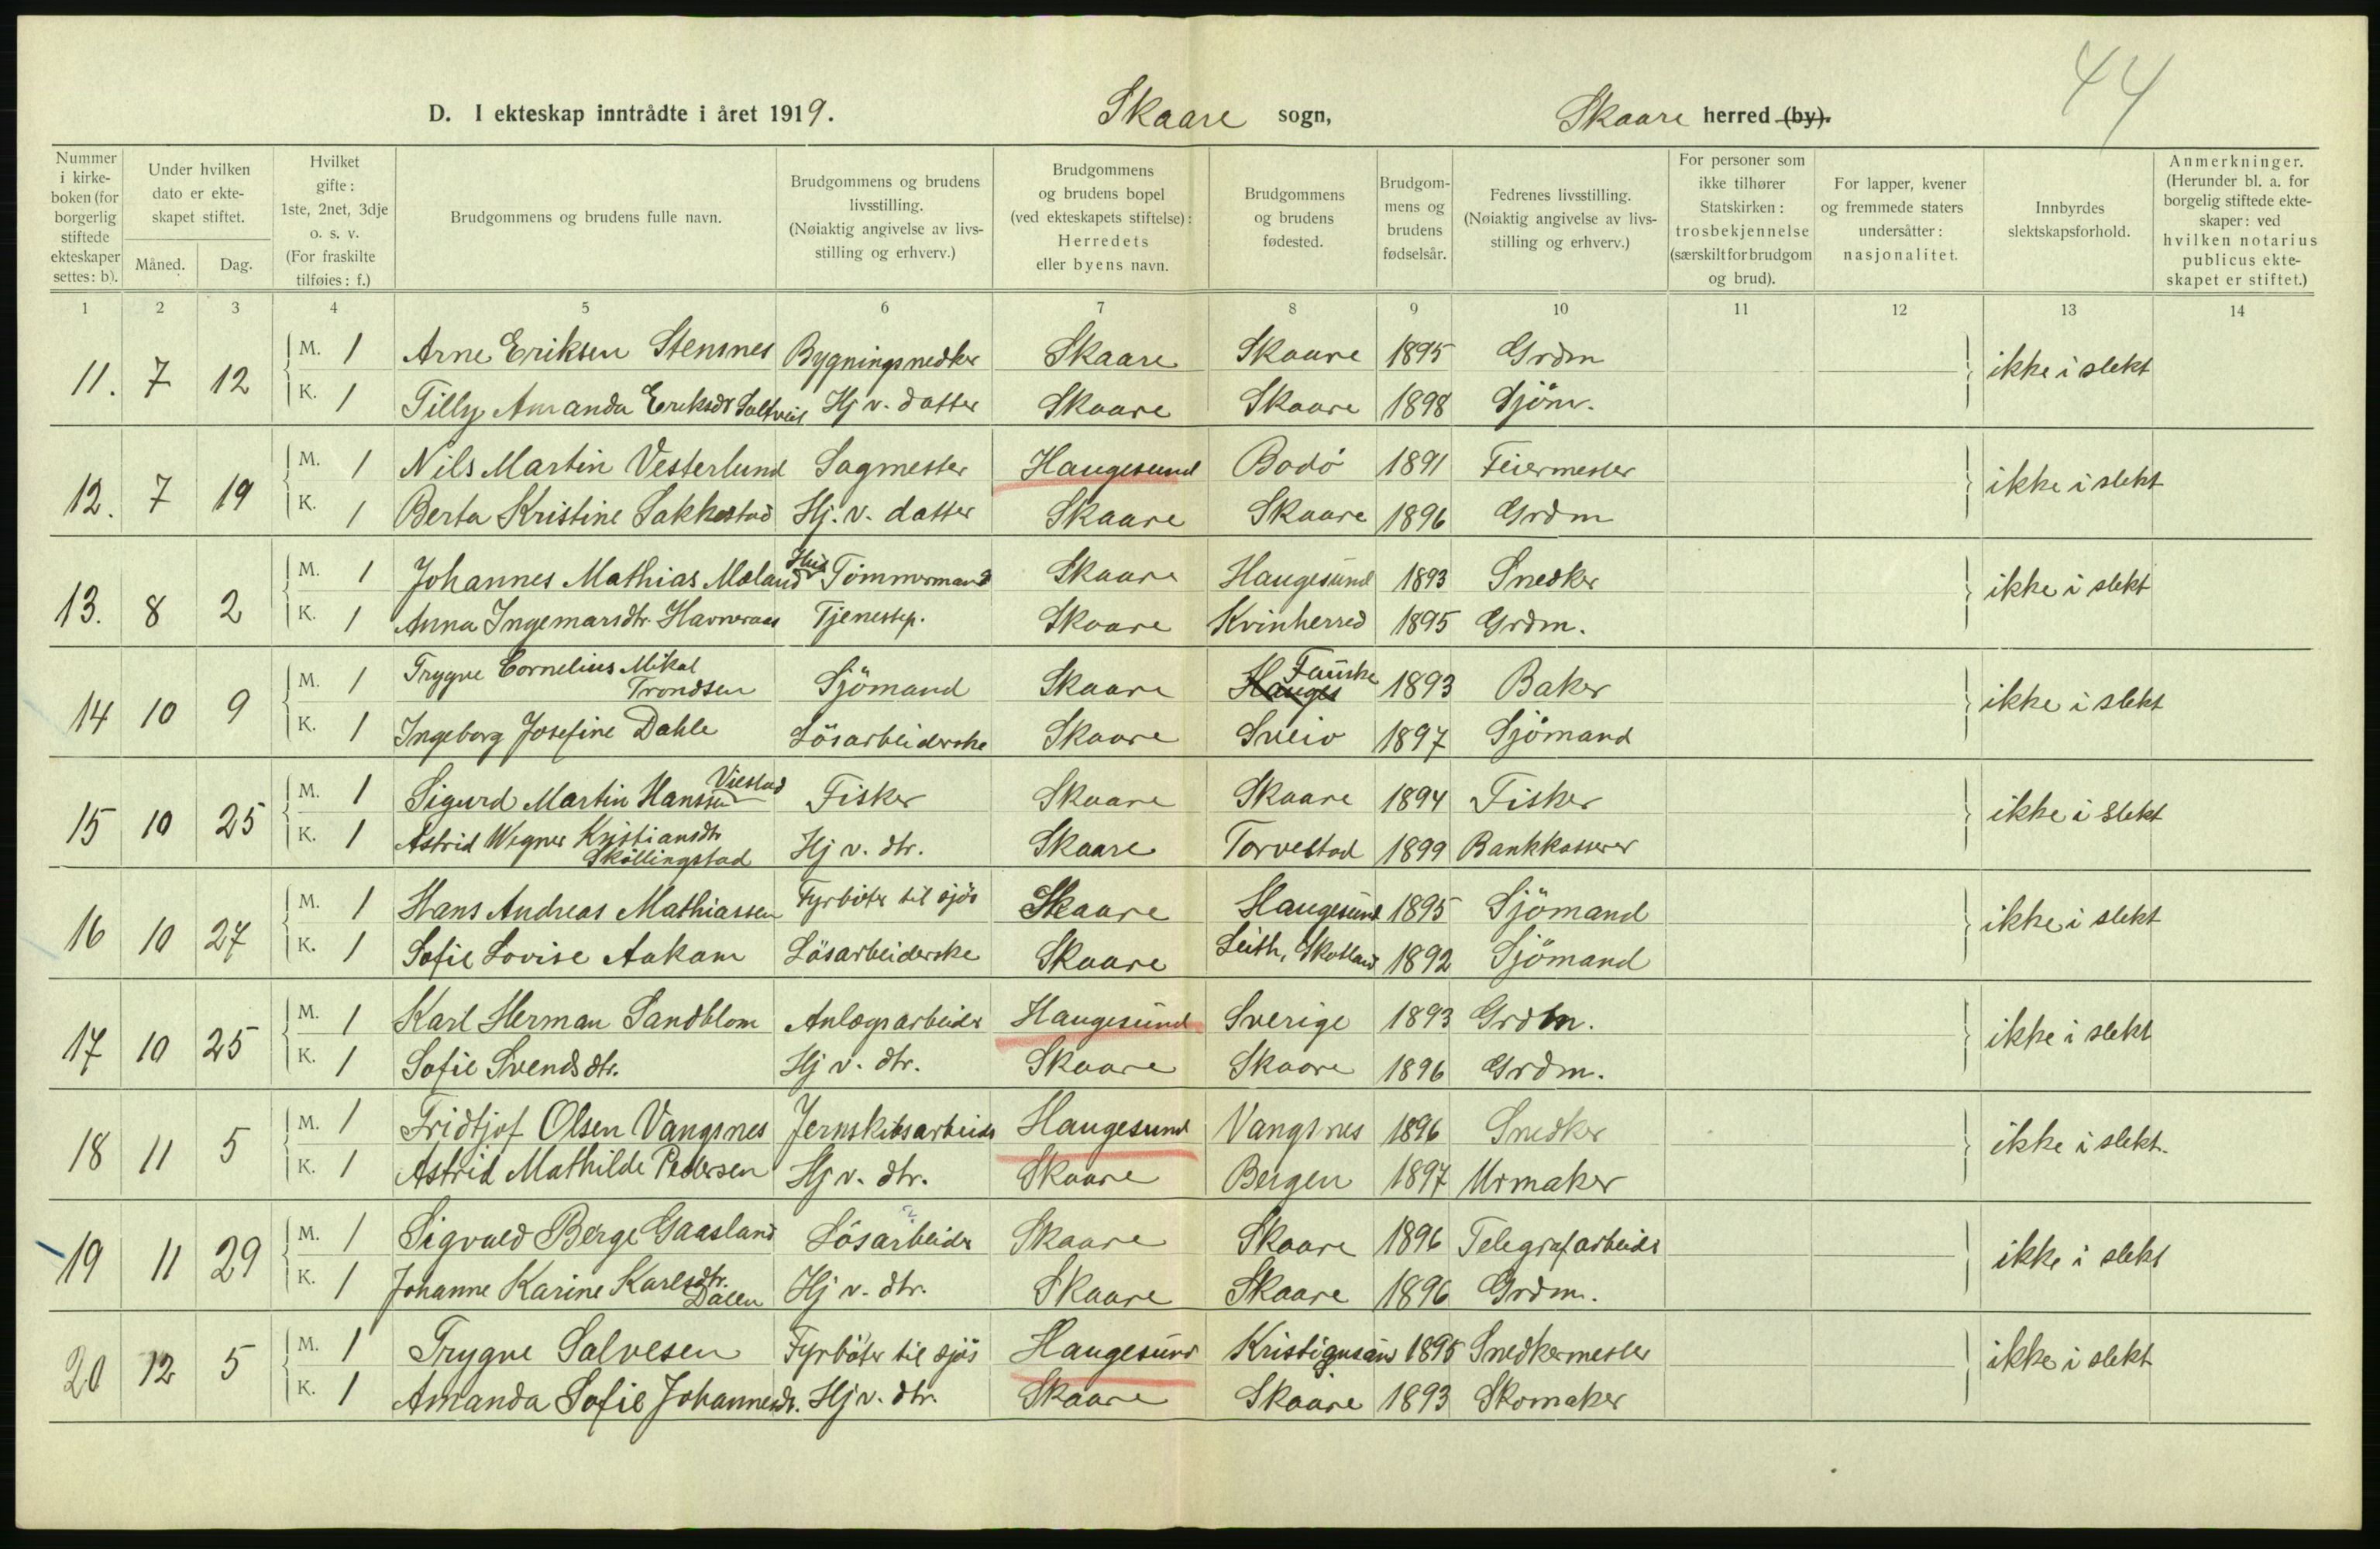 44
D. I ekteskap inntrådte i året 1919. Skaare sogn, Skaare herred (by).
Nummer i kirke-boken (for borgerlig stiftede ekteskaper settes: b).
Under hvilken dato er ekte-skapet stiftet.
Måned. Dag.
Hvilket gifte: 1ste, 2net, 3dje o. s. v. (For fraskilte tilføies: f.)
Brudgommens og brudens fulle navn.
Brudgommens og brudens livsstilling. (Nøiaktig angivelse av livs-stilling og erhverv.)
Brudgommens og brudens bopel (ved ekteskapets stiftelse): Herredets eller byens navn.
Brudgommens og brudens fødested.
Brudgom-mens og brudens fødselsår.
Fedrenes livsstilling. (Nøiaktig angivelse av livs-stilling og erhverv.)
For personer som ikke tilhører Statskirken: trosbekjennelse (særskilt for brudgom og brud).
For lapper, kvener og fremmede staters undersåtter: nasjonalitet.
Innbyrdes slektskapsforhold.
Anmerkninger. (Herunder bl. a. for borgelig stiftede ekte-skaper: ved hvilken notarius publicus ekte-skapet er stiftet.)
1 2 3 4 5 6 7 8 9 10 11 12 13 14
11. 7 12 M. 1 Arne Eriksen Stensnes Bygningsnedker Skaare Skaare 1895 Grdm ikke i slekt
K. 1 Tilly Amanda Eriksdr Saltveit Hj v. datter Skaare Skaare 1898 Sjöm.
12. 7 19 M. 1 Nils Martin Vesterlund Sagmester Haugesund Bodö 1891 Feiermester ikke i slekt
K. 1 Berta Kristine Sakkestad Hj. v. datter Skaare Skaare 1896 Grdm
13. 8 2 M. 1 Johannes Mathias Mæland Hus Tömmermand Skaare Haugesund 1893 Snedker ikke i slekt
K. 1 Anna Ingemarsdtr. Havneraas Tjenestep. Skaare Kvinherred 1895 Grdm.
14 10 9 M. 1 Trygve Cornelius Mikal Trondsen Sjömand Skaare Hauges Fauske 1893 Baker ikke i slekt
K. 1 Ingeborg Josefine Dahle Lösarbeiderske Skaare Sveio 1897 Sjömand
15 10 25 M. 1 Sigurd Martin Hanssen Viestad Fisker Skaare Skaare 1894 Fisker ikke i slekt
K. 1 Astrid Wegner Kristiansdtr Sköllingstad Hj v. dtr. Skaare Torvestad 1899 Bankkasserer
16 10 27 M. 1 Hans Andreas Mathiassen Fyrböter til sjös Skaare Haugesund 1895 Sjömand ikke i slekt
K. 1 Sofie Lovise Aakam Lösarbeiderske Skaare Leith, Skotland 1892 Sjömand
17 10 25 M. 1 Karl Herman Sandblom Anlægsarbeider Haugesund Sverige 1893 Grdm. ikke i slekt
K. 1 Sofie Svendsdtr. Hj v. dtr. Skaare Skaare 1896 Grdm.
18 11 5 M. 1 Fridtjof Olsen Vangsnes Jernskibsarbeider Haugesund Vangsnes 1896 Snedker ikke i slekt.
K. 1 Astrid Mathilde Pedersen Hj v. dtr. Skaare Bergen 1897 Urmaker
19 11 29 M. 1 Sigvald Berge Gaasland Lösarbeider Skaare Skaare 1896 Telegrafarbeider ikke i slekt
K. 1 Johanne Karine Karlsdtr. Dalen Hj v. dtr. Skaare Skaare 1896 Grdm.
20 12 5 M. 1 Trygve Salvesen Fyrböter til sjös Haugesund Kristiansand 1895 Snedkermester ikke i slekt
K. 1 Amanda Sofie Johannesdr. Hj v. dtr. Skaare Skaare 1893 Skomaker